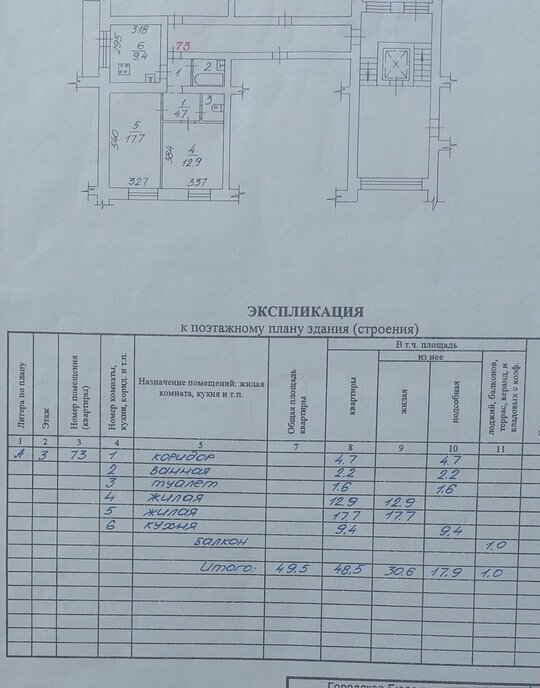 318
295
6
9.4
73
1
2
1
4.7
3
540
5
17.7
384
4
12.9
327
337
ЭКСПЛИКАЦИЯ
к поэтажному плану здания (строения)
Литера по плану
Этаж
Номер помещения (квартиры)
Номер комнаты, кухни, корид. и т.п.
Назначение помещений: жилая комната, кухня и т.п.
Общая площадь квартиры
В т.ч. площадь
квартиры
из нее
жилая
подсобная
лоджий, балконов, террас, веранд, и кладовых с коэф.
1 2 3 4 5 7 8 9 10 11
А 3 73 1 коридор 4.7 4.7
2 ванная 2.2 2.2
3 туалет 1.6 1.6
4 жилая 12.9 12.9
5 жилая 17.7 17.7
6 кухня 9.4 9.4
Балкон 1.0
Итого: 49.5 48.5 30.6 17.9 1.0